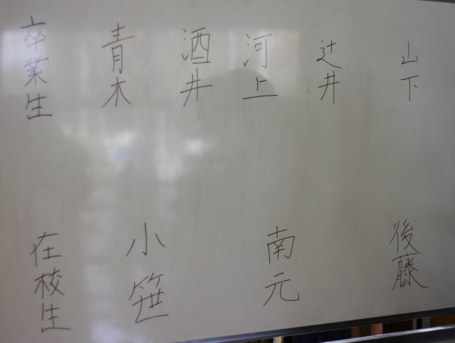 山下
辻井
河上
酒井
青木
卒業生
後藤
南元
小笹
在校生